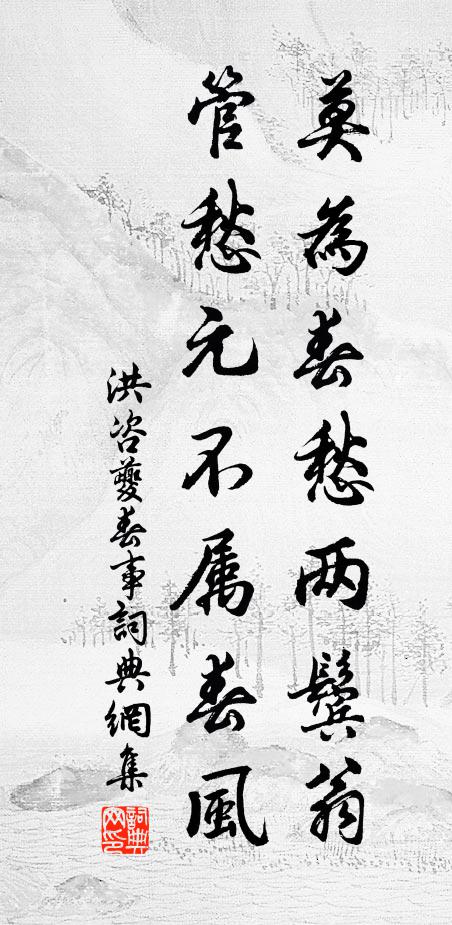 莫為春愁两鬢翁
管愁元不属春風
洪咨夔春事詞典網集
詞典網印